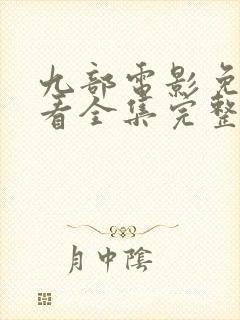 九部電影免
看全集完整
月中陰